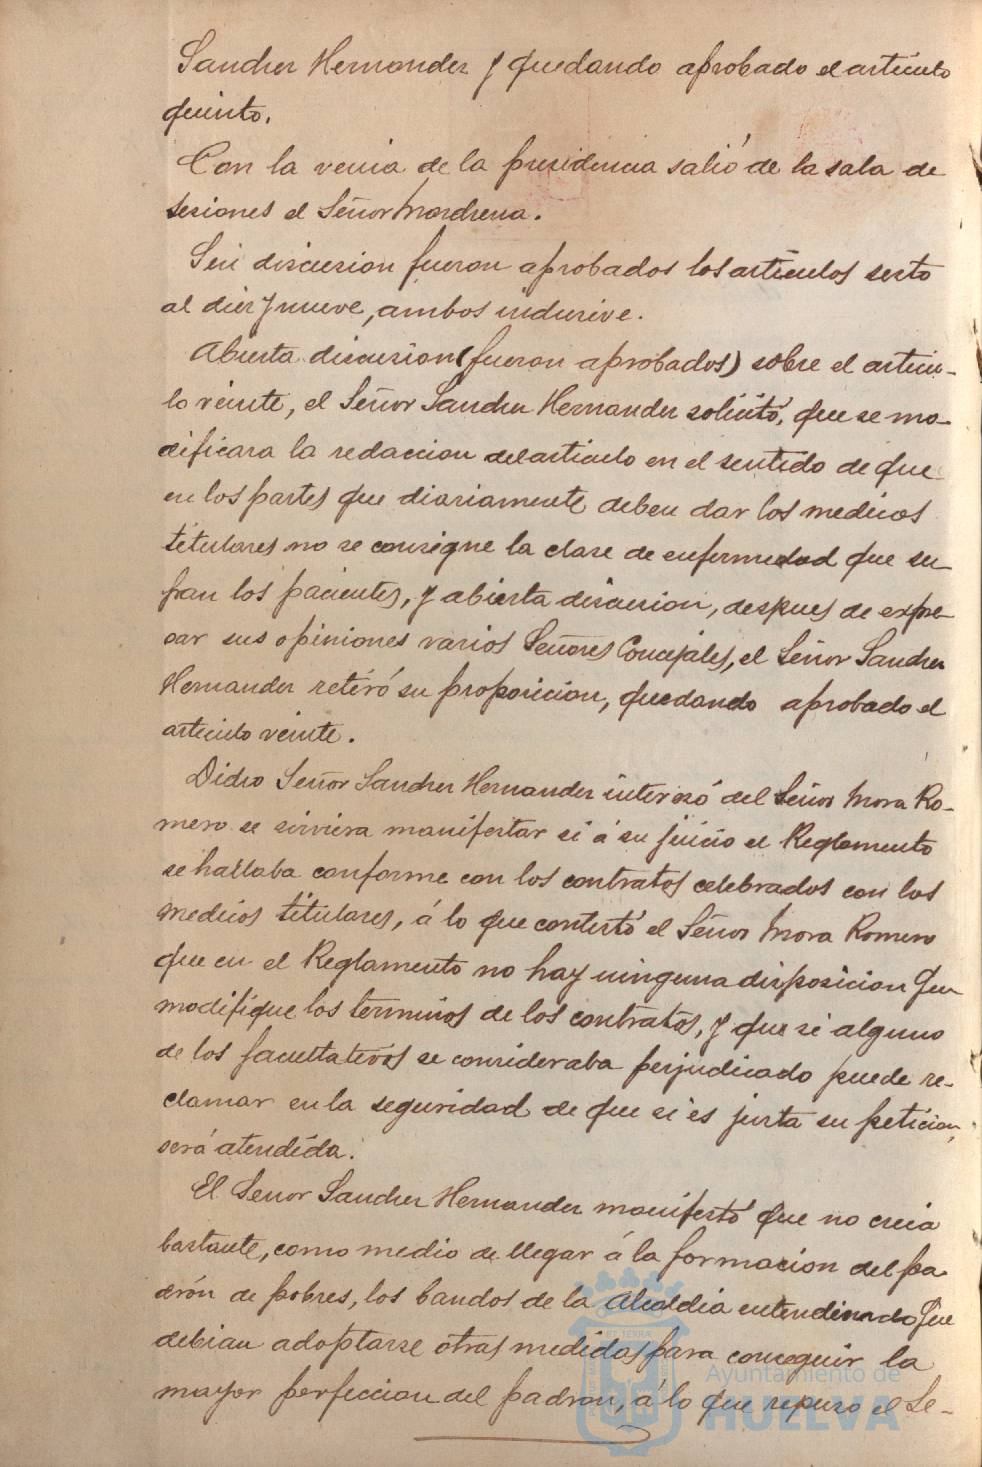 Sanchez Hernandez y quedando aprobado el articulo
quinto.
Con la venia de la presidencia salió de la sala de
sesiones el Señor Marchena.
Sin discusion fueron aprobados los articulos sesto
al diez y nueve, ambos inclusive.
Abierta discusion (fueron aprobados) sobre el articu-
lo veinte, el Señor Sanchez Hernandez solicitó, que se mo-
dificara la redaccion del articulo en el sentido de que
en los partes que diariamente deben dar los medicos
titulares no se consigne la clase de enfermedad que su-
fran los pacientes, y abierta discusion, despues de expre-
sar sus opiniones varios Señores Concejales, el Señor Sanchez
Hernandez retiró su proposicion, quedando aprobado el
articulo veinte.
Dicho Señor Sanchez Hernandez interesó del Señor Mora Ro-
mero se sirviera manifestar si á su juicio el Reglamento
se hallaba conforme con los contratos celebrados con los
medicos titulares, á lo que contestó el Señor Mora Romero
que en el Reglamento no hay ninguna disposicion que
modifique los terminos de los contratos, y que si alguno
de los facultativos se consideraba perjudicado puede re-
clamar en la seguridad de que si es justa su peticion,
será atendida.
El Señor Sanchez Hernandez manifestó que no creia
bastante, como medio de llegar á la formacion del pa-
drón de pobres, los bandos de la Alcaldia entendiendo que
debian adoptarse otras medidas para conseguir la
mayor perfeccion del padron, á lo que repuso el Se-
Ayuntamiento de
HUELVA